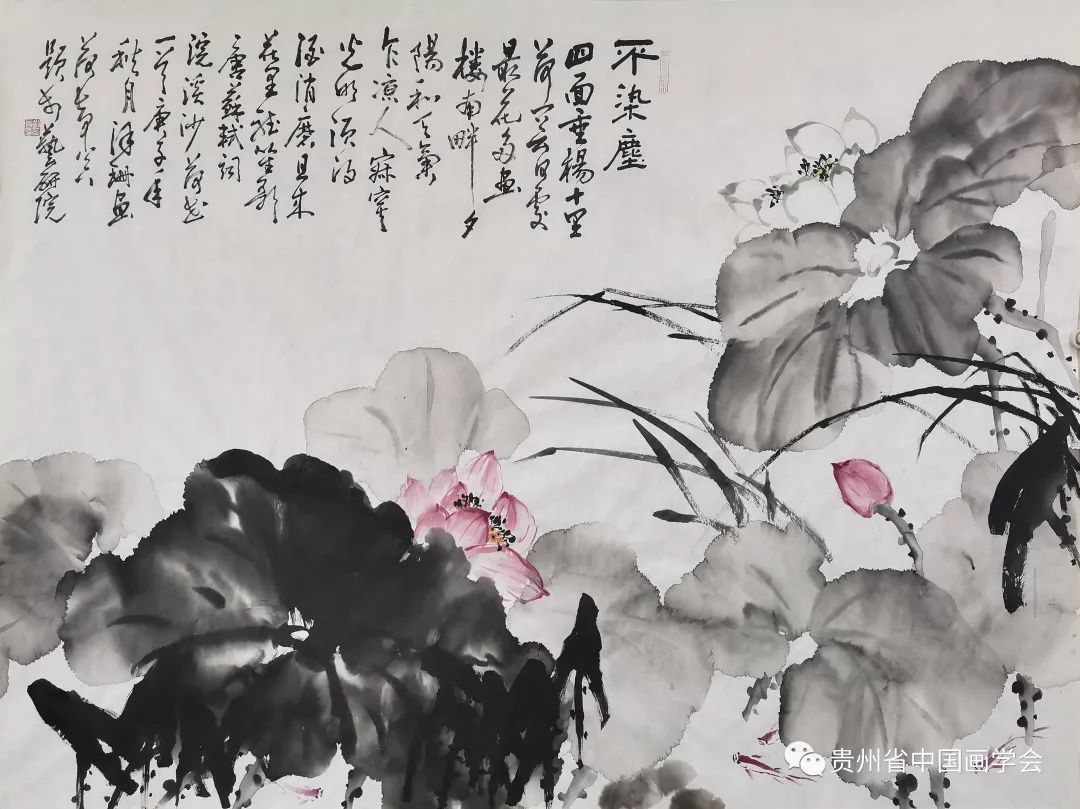 不染塵
四面垂楊十里
荷問云何處
最花多畫
樓南畔夕
陽和天氣
乍涼人寂寞
光陰須得
酒消磨且來
花里聽笙歌
唐蘇軾詞
浣溪沙荷花
一首庚子年
秋月澤珊畫
荷
題於藝研院
贵州省中国画学会